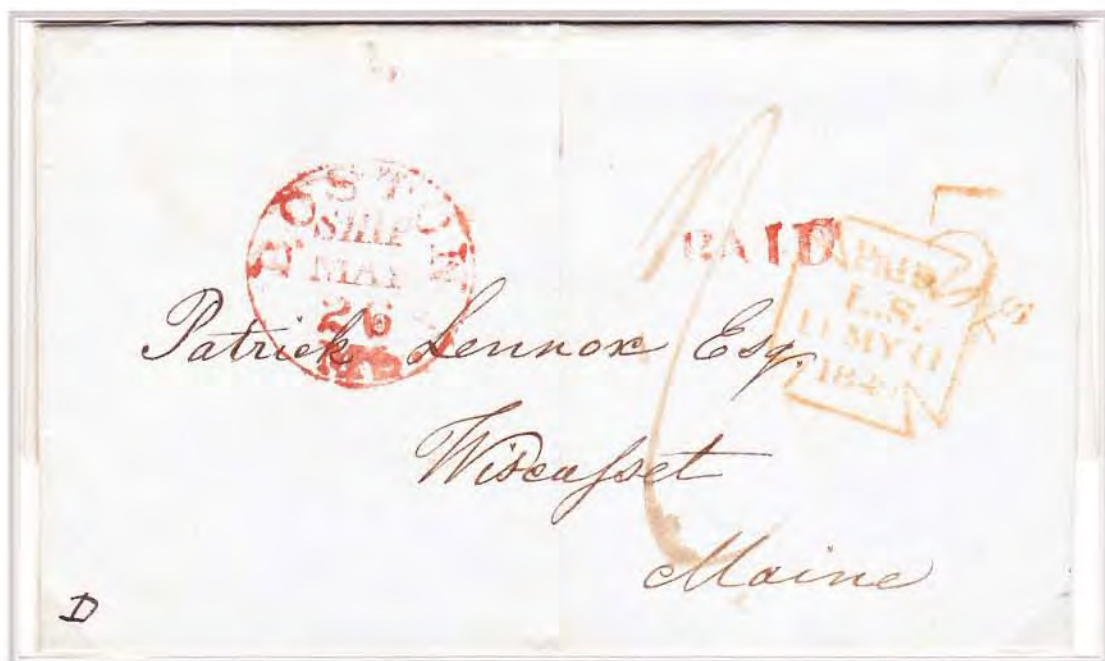 BOSTON
SHIP
MAY
26
MS
PAID
PAID
L.S.
Patrick Lennox Esq.
Wiscasset
Maine
D